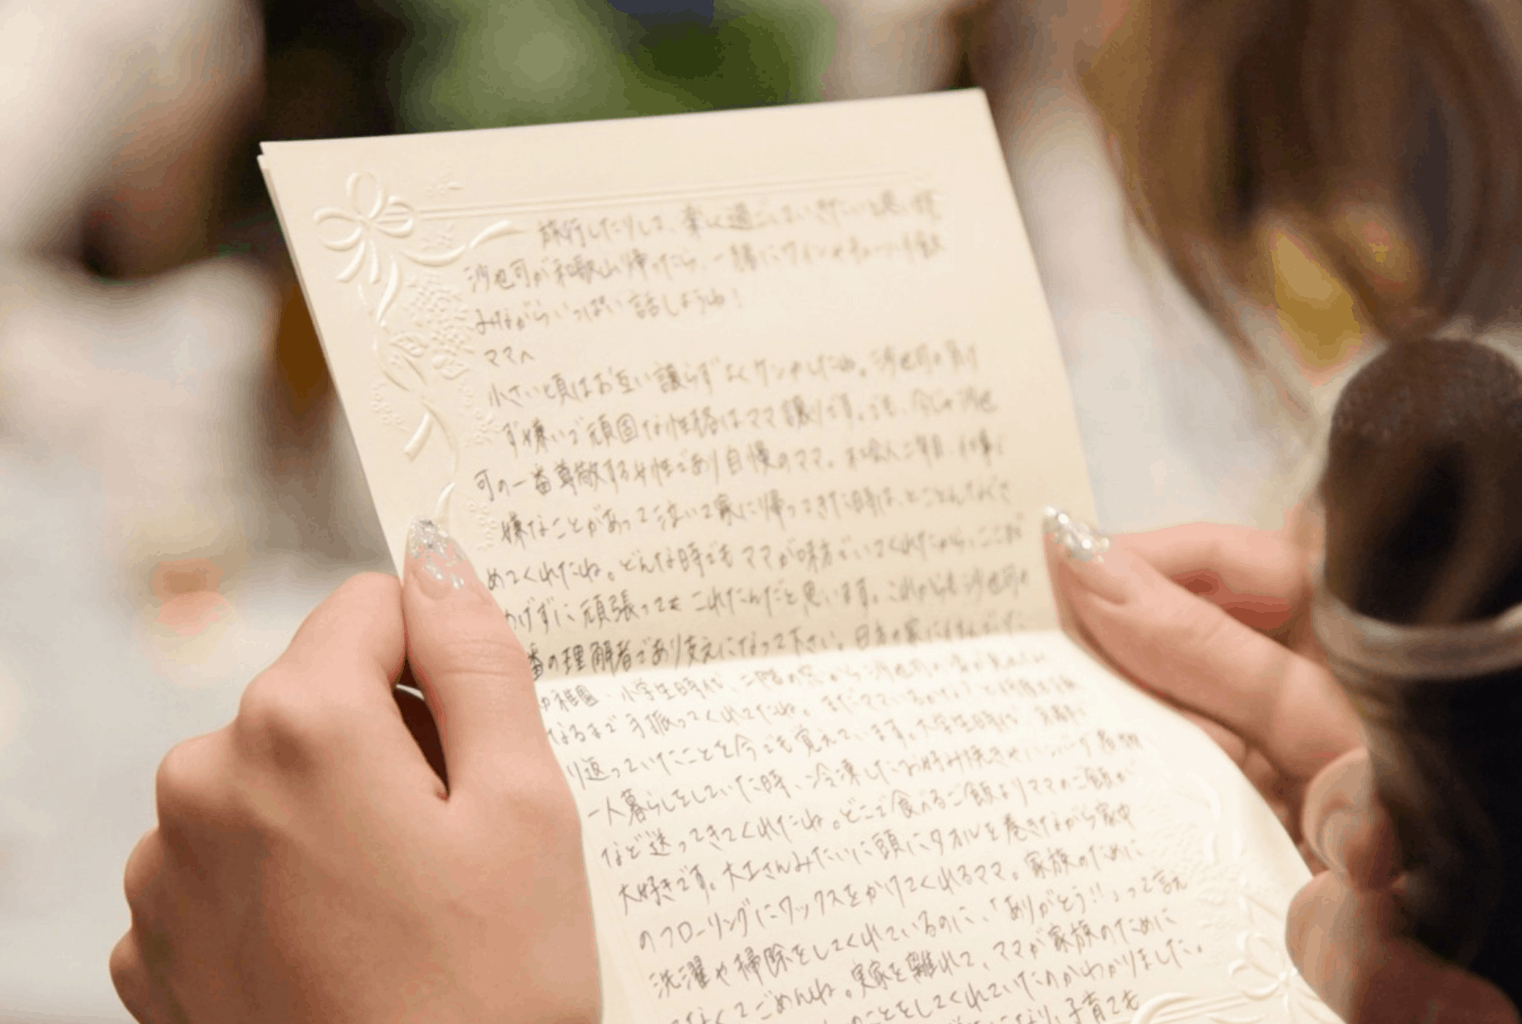 旅行したりして、楽しく過ごしていきたいと思います
沙也可が和歌山帰ったら、一緒にワインやチューハイ飲
みながらいっぱい話しようね!
ママへ
小さい頃はお互い譲らずよくケンカしたね。沙也可の負け
ず嫌いで頑固な性格はママ譲りです。でも、今じゃ沙也
可の一番尊敬する女性であり自慢のママ。社会人二年目、仕事で
嫌なことがあって泣いて家に帰ってきた時は、とことんなぐさ
めてくれたね。どんな時でもママが味方でいてくれたから、ここまで
めげずに頑張ってもこれたんだと思います。これからも沙也可の
番の理解者であり支えになって下さい。
幼稚園、小学生時代、二階の窓から沙也可の姿が見えなく
なるまで手振ってくれてたね。まだママいるかな?と何度も
り返っていたことを今でも覚えています。大学生時代、
一人暮らしをしていた時、冷凍したお好み焼きやハンバーグ
など送ってきてくれたね。どこで食べるご飯よりママのご飯が
大好きです。大工さんみたいに頭にタオルを巻きながら家中
のフローリングにワックスをかけてくれるママ。家族のために
洗濯や掃除をしてくれているのに、「ありがとう!!」って言え
なくてごめんね。実家を離れて、ママが家族のために
のことをしてくれていたのかわかりました。
になり、子育ても